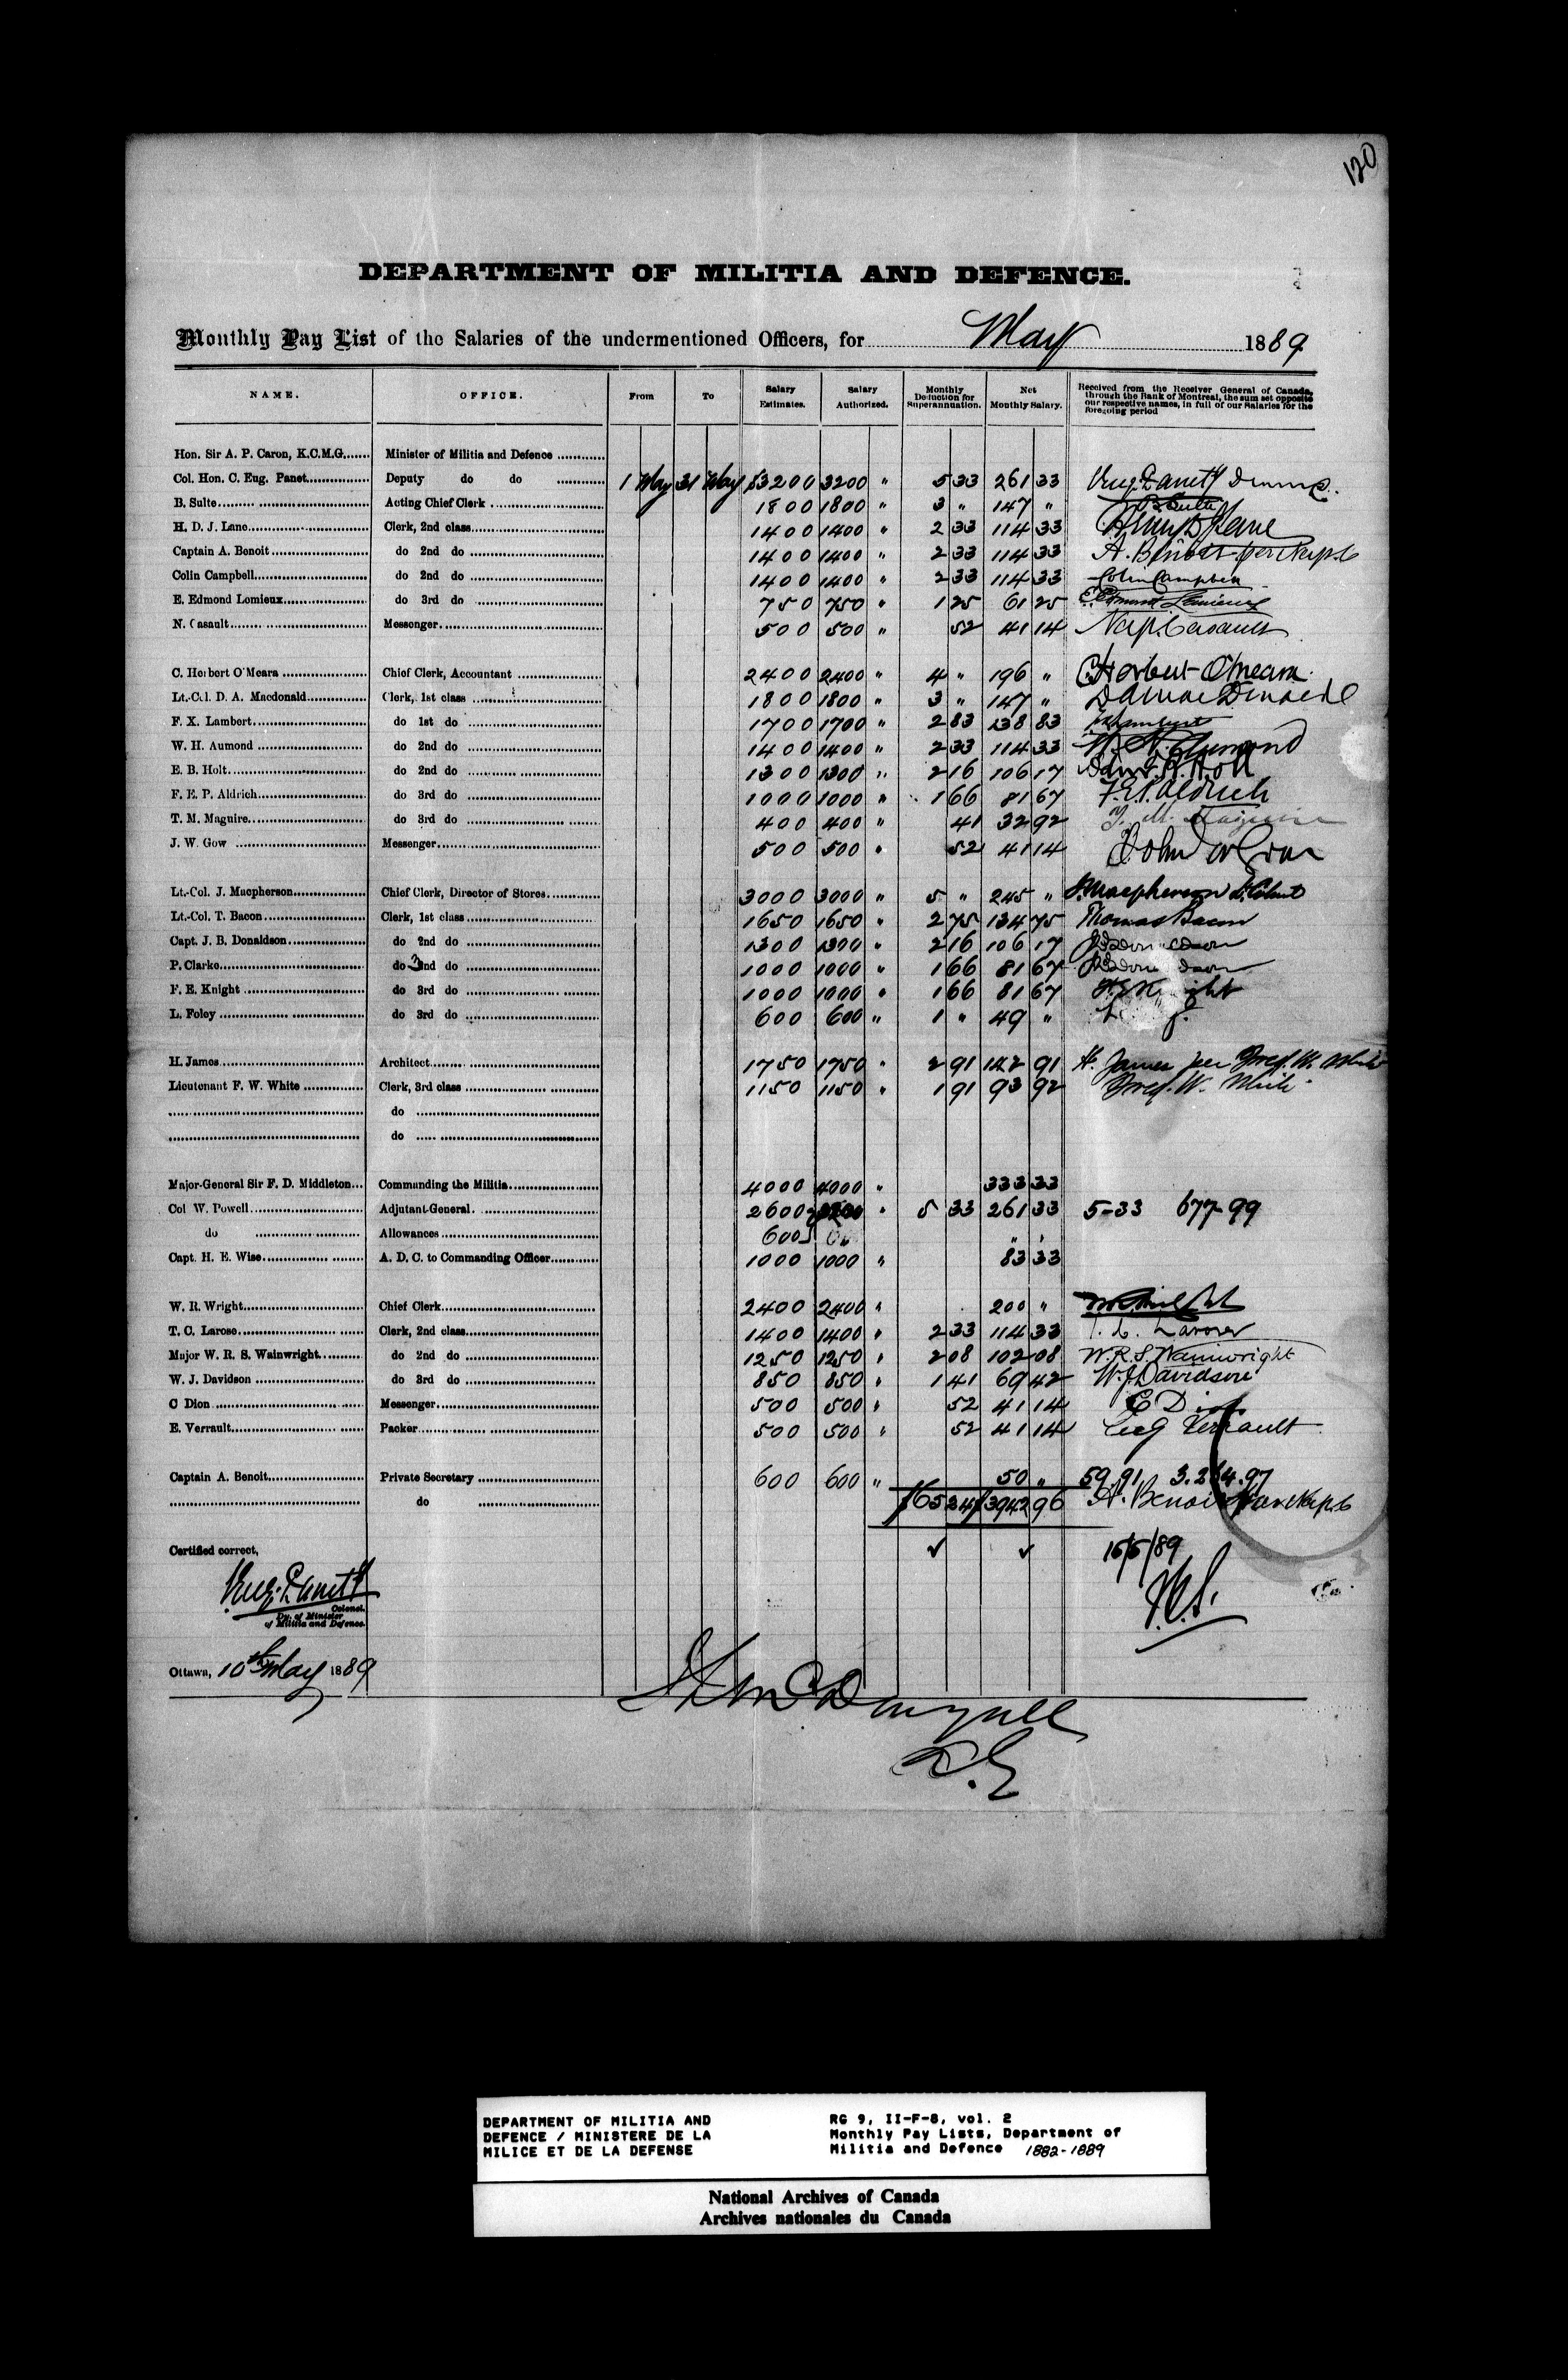 120
DEPARTMENT OF MILITIA AND DEFENCE.
Monthly Pay List of the Salaries of the undermentioned Officers, for May 1889
NAME. OFFICE. From To Salary Estimates. Salary Authorized. Monthly Deduction for Superannuation. Net Monthly Salary. Received from the Receiver General of Canada, through the Bank of Montreal, the sum set opposite our respective names, in full of our Salaries for the foregoing period
Hon. Sir A. P. Caron, K.C.M.G. Minister of Militia and Defence
Col. Hon. C. Eug. Panet Deputy do do 1 May 31 May $3200 3200 " 5 33 261 33 Eug. Panet
B. Sulte Acting Chief Clerk 1800 1800 " 3 " 147 " B Sulte
H. D. J. Lane Clerk, 2nd class 1400 1400 " 2 33 114 33 Henry D J Lane
Captain A. Benoit do 2nd do 1400 1400 " 2 33 114 33 A. Benoit per
Colin Campbell do 2nd do 1400 1400 " 2 33 114 33 Colin Campbell
E. Edmond Lemieux do 3rd do 750 750 " 1 25 61 25 E. Edmond Lemieux
N. Casault Messenger 500 500 " 52 41 14 Nap. Casault
C. Herbert O'Meara Chief Clerk, Accountant 2400 2400 " 4 " 196 " C Herbert O'Meara
Lt.-Col. D. A. Macdonald Clerk, 1st class 1800 1800 " 3 " 147 "
F. X. Lambert do 1st do 1700 1700 " 2 83 138 83 F X Lambert
W. H. Aumond do 2nd do 1400 1400 " 2 33 114 33 W. H. Aumond
E. B. Holt do 2nd do 1300 1300 " 2 16 106 17 Edw. B. Holt
F. E. P. Aldrich do 3rd do 1000 1000 " 1 66 81 67 F. E. P. Aldrich
T. M. Maguire do 3rd do 400 400 " 41 32 92 T. M. Maguire
J. W. Gow Messenger 500 500 " 52 41 14 John W Gow
Lt.-Col. J. Macpherson Chief Clerk, Director of Stores 3000 3000 " 5 " 245 " J. Macpherson Lt. Colonel
Lt.-Col. T. Bacon Clerk, 1st class 1650 1650 " 2 75 134 75 Thomas Bacon
Capt. J. B. Donaldson do 2nd do 1300 1300 " 2 16 106 17 J B Donaldson
P. Clarke do 3nd do 1000 1000 " 1 66 81 67 J B Donaldson
F. E. Knight do 3rd do 1000 1000 " 1 66 81 67 F. E. Knight
L. Foley do 3rd do 600 600 " 1 " 49 "
H. James Architect 1750 1750 " 2 91 142 91 H. James per Fred. W. White
Lieutenant F. W. White Clerk, 3rd class 1150 1150 " 1 91 93 92 Fred. W. White
do
do
Major-General Sir F. D. Middleton Commanding the Militia 4000 4000 " 333 33
Col W. Powell Adjutant-General 2600 " 5 33 261 33 5-33 677-99
do Allowances 600 " "
Capt. H. E. Wise A. D. C. to Commanding Officer 1000 1000 " 83 33
W. R. Wright Chief Clerk 2400 2400 " 200 "
T. C. Larose Clerk, 2nd class 1400 1400 " 2 33 114 33 T. C. Larose
Major W. R. S. Wainwright do 2nd do 1250 1250 " 2 08 102 08 W. R. S. Wainwright
W. J. Davidson do 3rd do 850 850 " 1 41 69 42 W J Davidson
C Dion Messenger 500 500 " 52 41 14 C Dion
E. Verrault Packer 500 500 " 52 41 14 Verrault
Captain A. Benoit Private Secretary 600 600 " 50 " 59.91 3.264.97
do $65 24 $3942 96 A. Benoit
Certified correct, 15/5/89
Eug. Panet
Colonel.
Dy. of Minister
of Militia and Defence.
Ottawa, 10th May 1889
DEPARTMENT OF MILITIA AND
DEFENCE / MINISTERE DE LA
MILICE ET DE LA DEFENSE
RG 9, II-F-8, vol. 2
Monthly Pay Lists, Department of
Militia and Defence 1882-1889
National Archives of Canada
Archives nationales du Canada